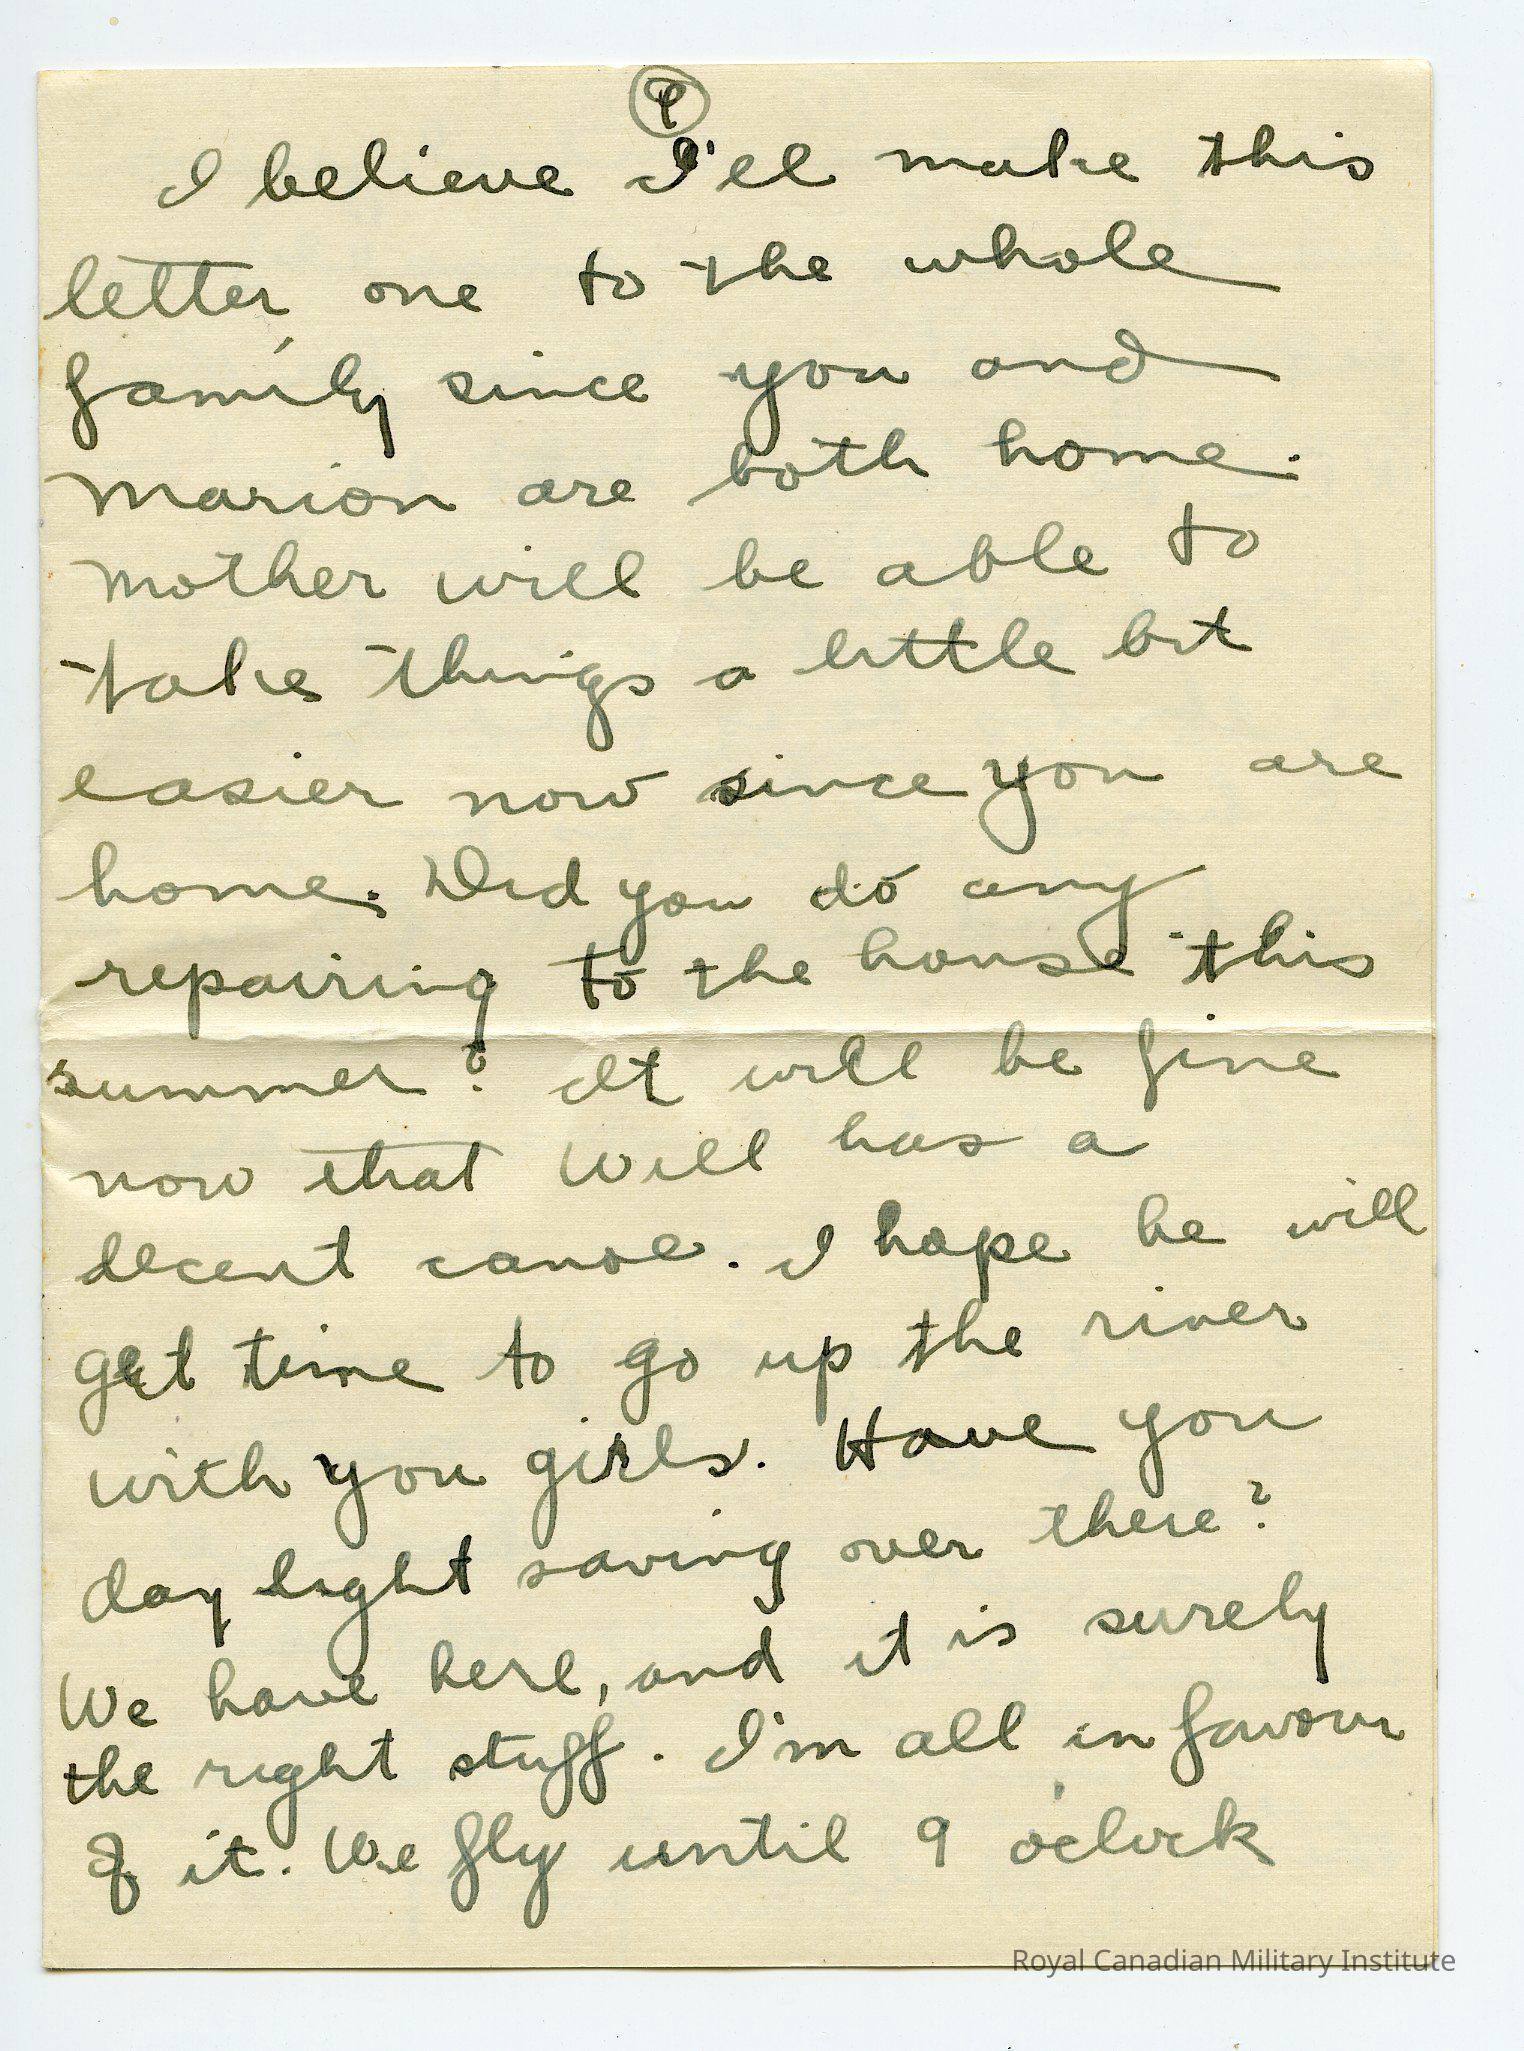 I believe I'll make this
letter one to the whole
family since you and
Marion are both home.
Mother will be able to
take things a little bit
easier now since you are
home. Did you do any
repairing to the house this
summer? It will be fine
now that Will has a
decent canoe. I hope he will
get time to go up the river
with you girls. Have you
day light saving over there?
We have here, and it is surely
the right stuff. I'm all in favour
of it. We fly until 9 o'clock
Royal Canadian Military Institute